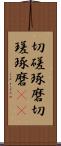 切磋琢磨切
瑳琢磨